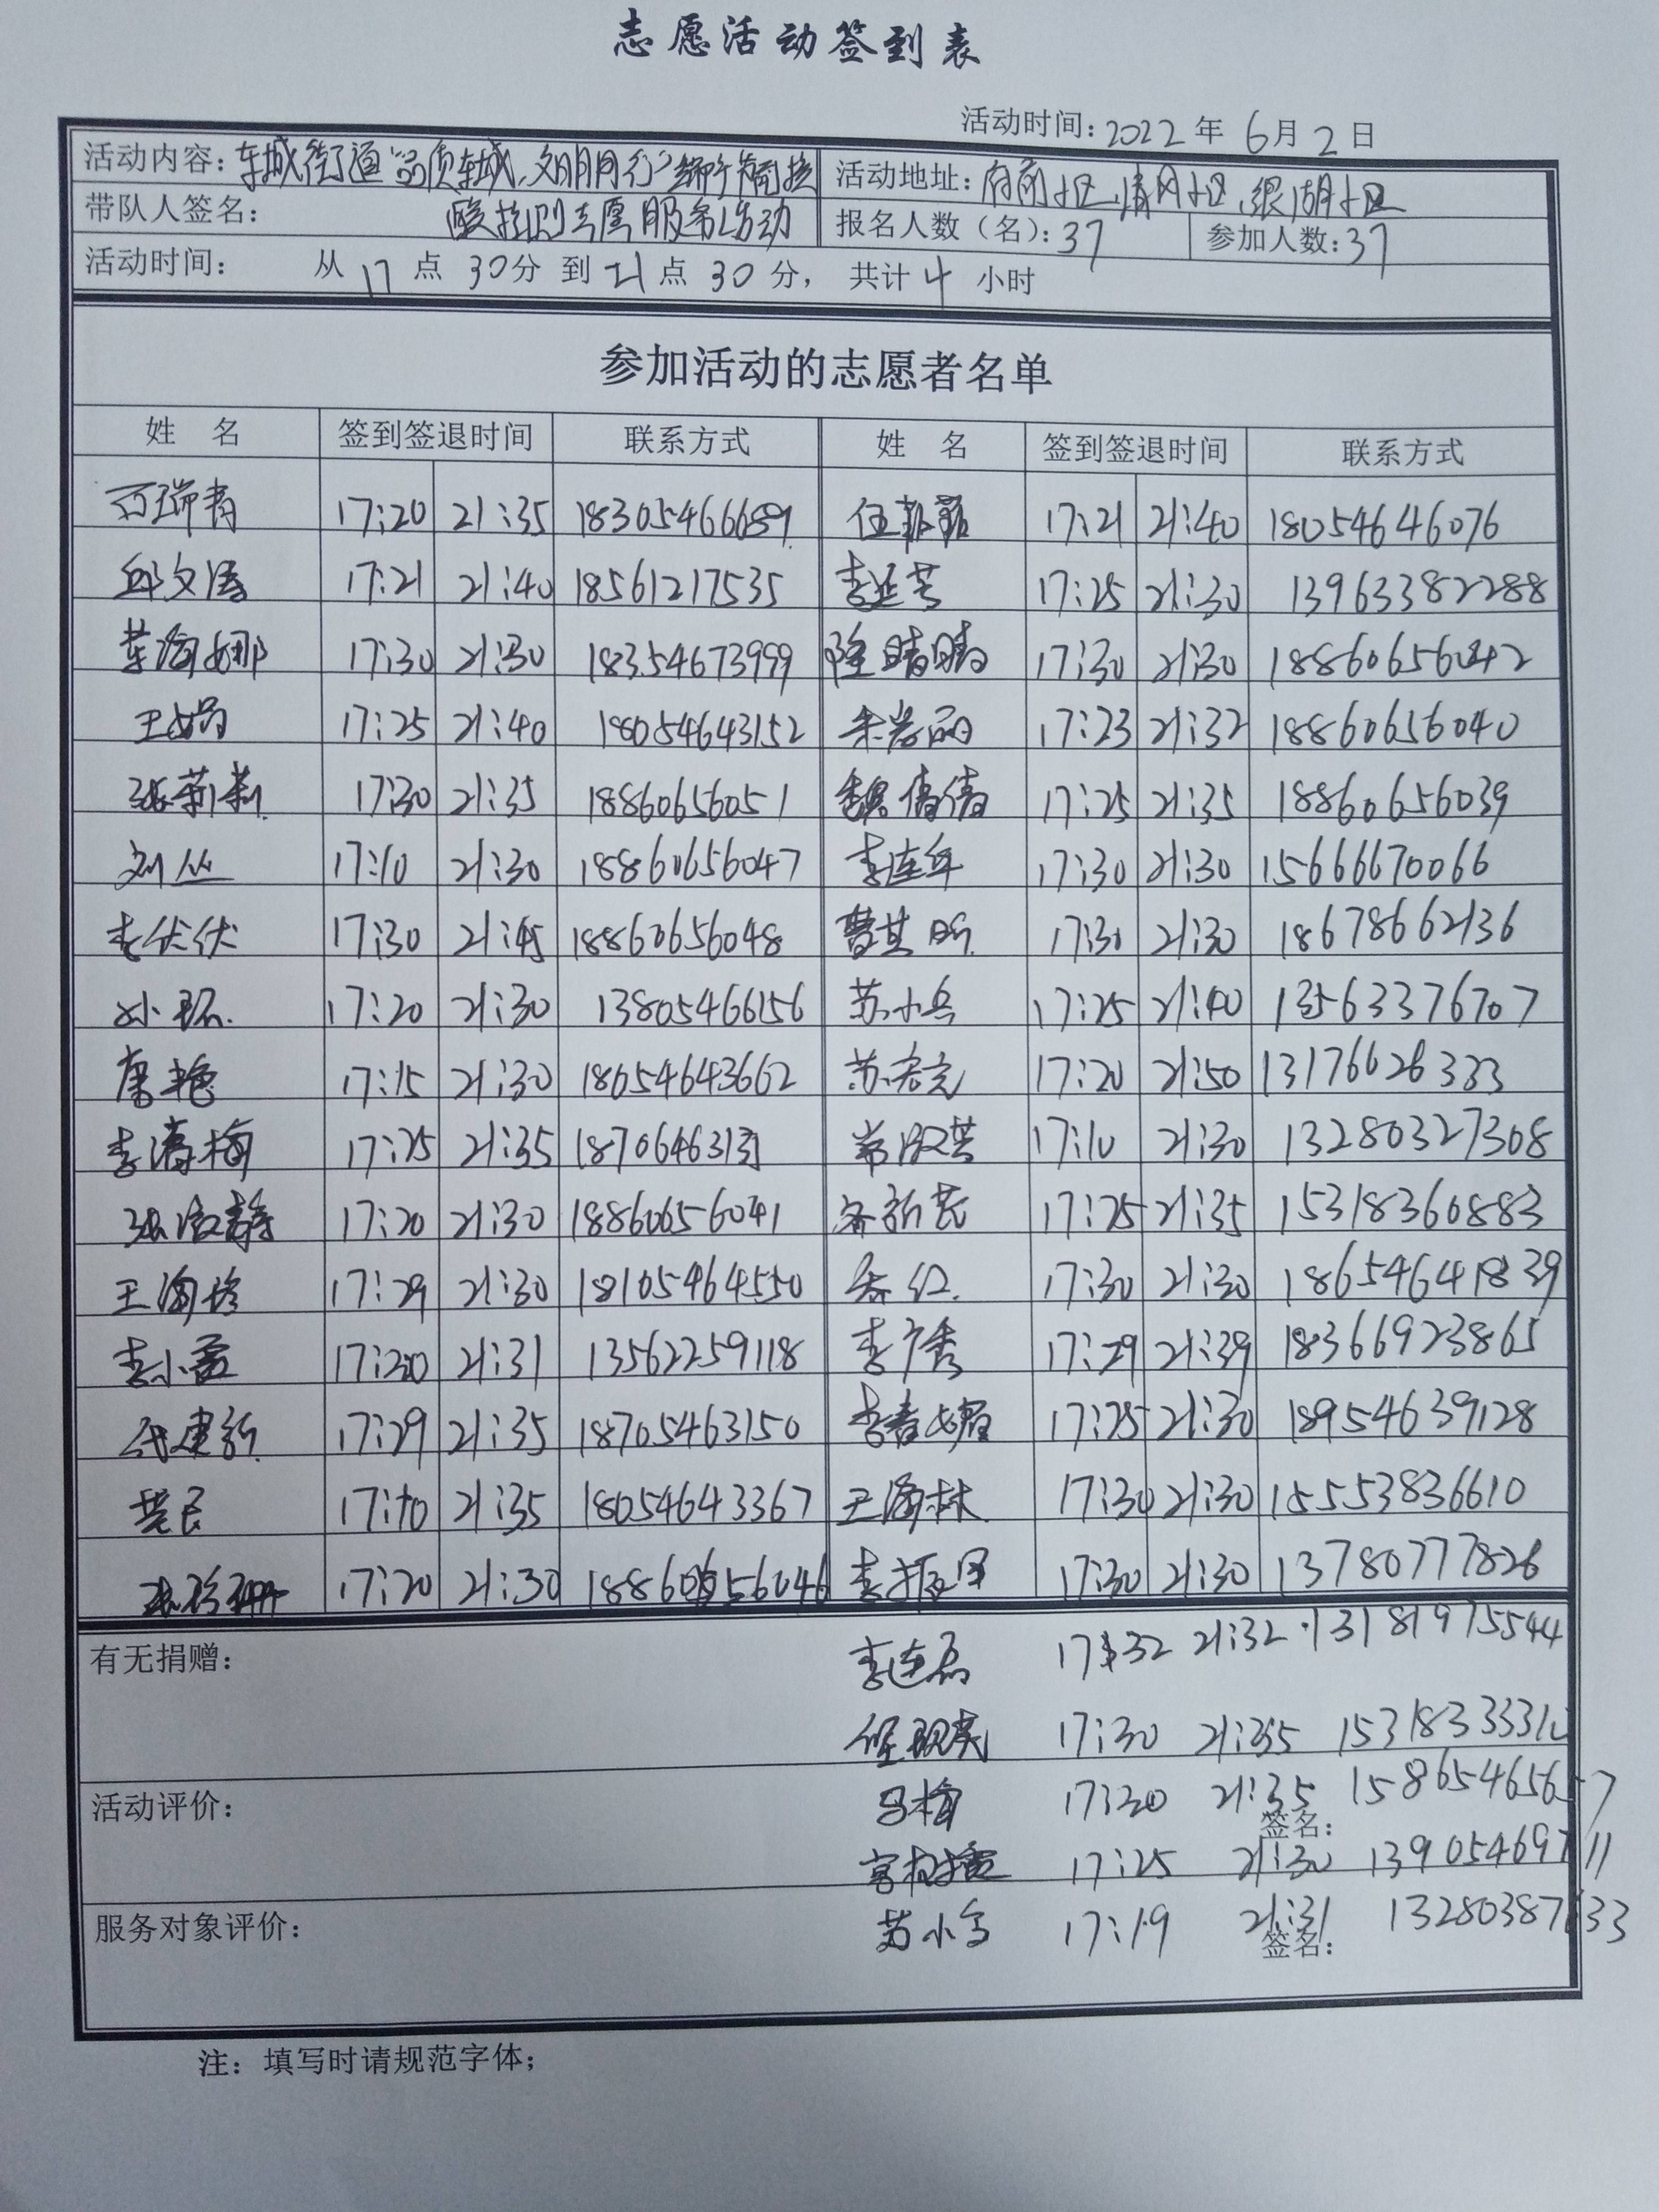 志愿活动签到表
活动时间：2022年6月2日
活动内容：东城街道"品质东城，文明同行" 活动地址：府前小区、清风小区、银湖小区
带队人签名： 志愿服务活动 报名人数（名）：37 参加人数：37
活动时间： 从17点30分到21点30分，共计4小时
参加活动的志愿者名单
姓 名 签到签退时间 联系方式 姓 名 签到签退时间 联系方式
17:20 21:35 18305466689 任菲菲 17:21 21:40 18054646076
邱文涛 17:21 21:40 18561217535 李延芳 17:25 21:30 13963382288
海娜 17:30 21:30 18354673999 隆晴晴 17:30 21:30 18860656042
王娟 17:25 21:40 18054643152 朱岩丽 17:23 21:32 18860656040
张莉莉 17:30 21:35 18860656051 魏倩倩 17:25 21:35 18860656039
刘丛 17:10 21:30 18860656047 李连年 17:30 21:30 15666670066
李伏伏 17:30 21:45 18860656048 曹其 17:30 21:30 18678662136
孙环 17:20 21:30 13805466156 苏小兵 17:25 21:40 13563376707
唐艳 17:15 21:30 18054643662 苏 17:20 21:50 13176626333
李海梅 17:25 21:35 常淑芸 17:10 21:30 13280327308
张淑静 17:20 21:30 18860656041 新芸 17:25 21:35 15318360883
王海珍 17:29 21:30 18105464550 乔红 17:30 21:30 18654641839
李小霞 17:20 21:31 13562259118 李广秀 17:29 21:39 18366923865
代建新 17:29 21:35 18705463150 李春燿 17:25 21:30 18954639128
17:10 21:35 18054643367 王海林 17:30 21:30 15553836610
17:20 21:30 18860656046 李振国 17:30 21:30 13780777826
有无捐赠： 李连磊 17:32 21:32 13181975544
任现英 17:30 21:35
活动评价： 马梅 17:30 21:35
签名：
17:25 21:30
服务对象评价： 苏小 17:19 21:31
签名：
注：填写时请规范字体；